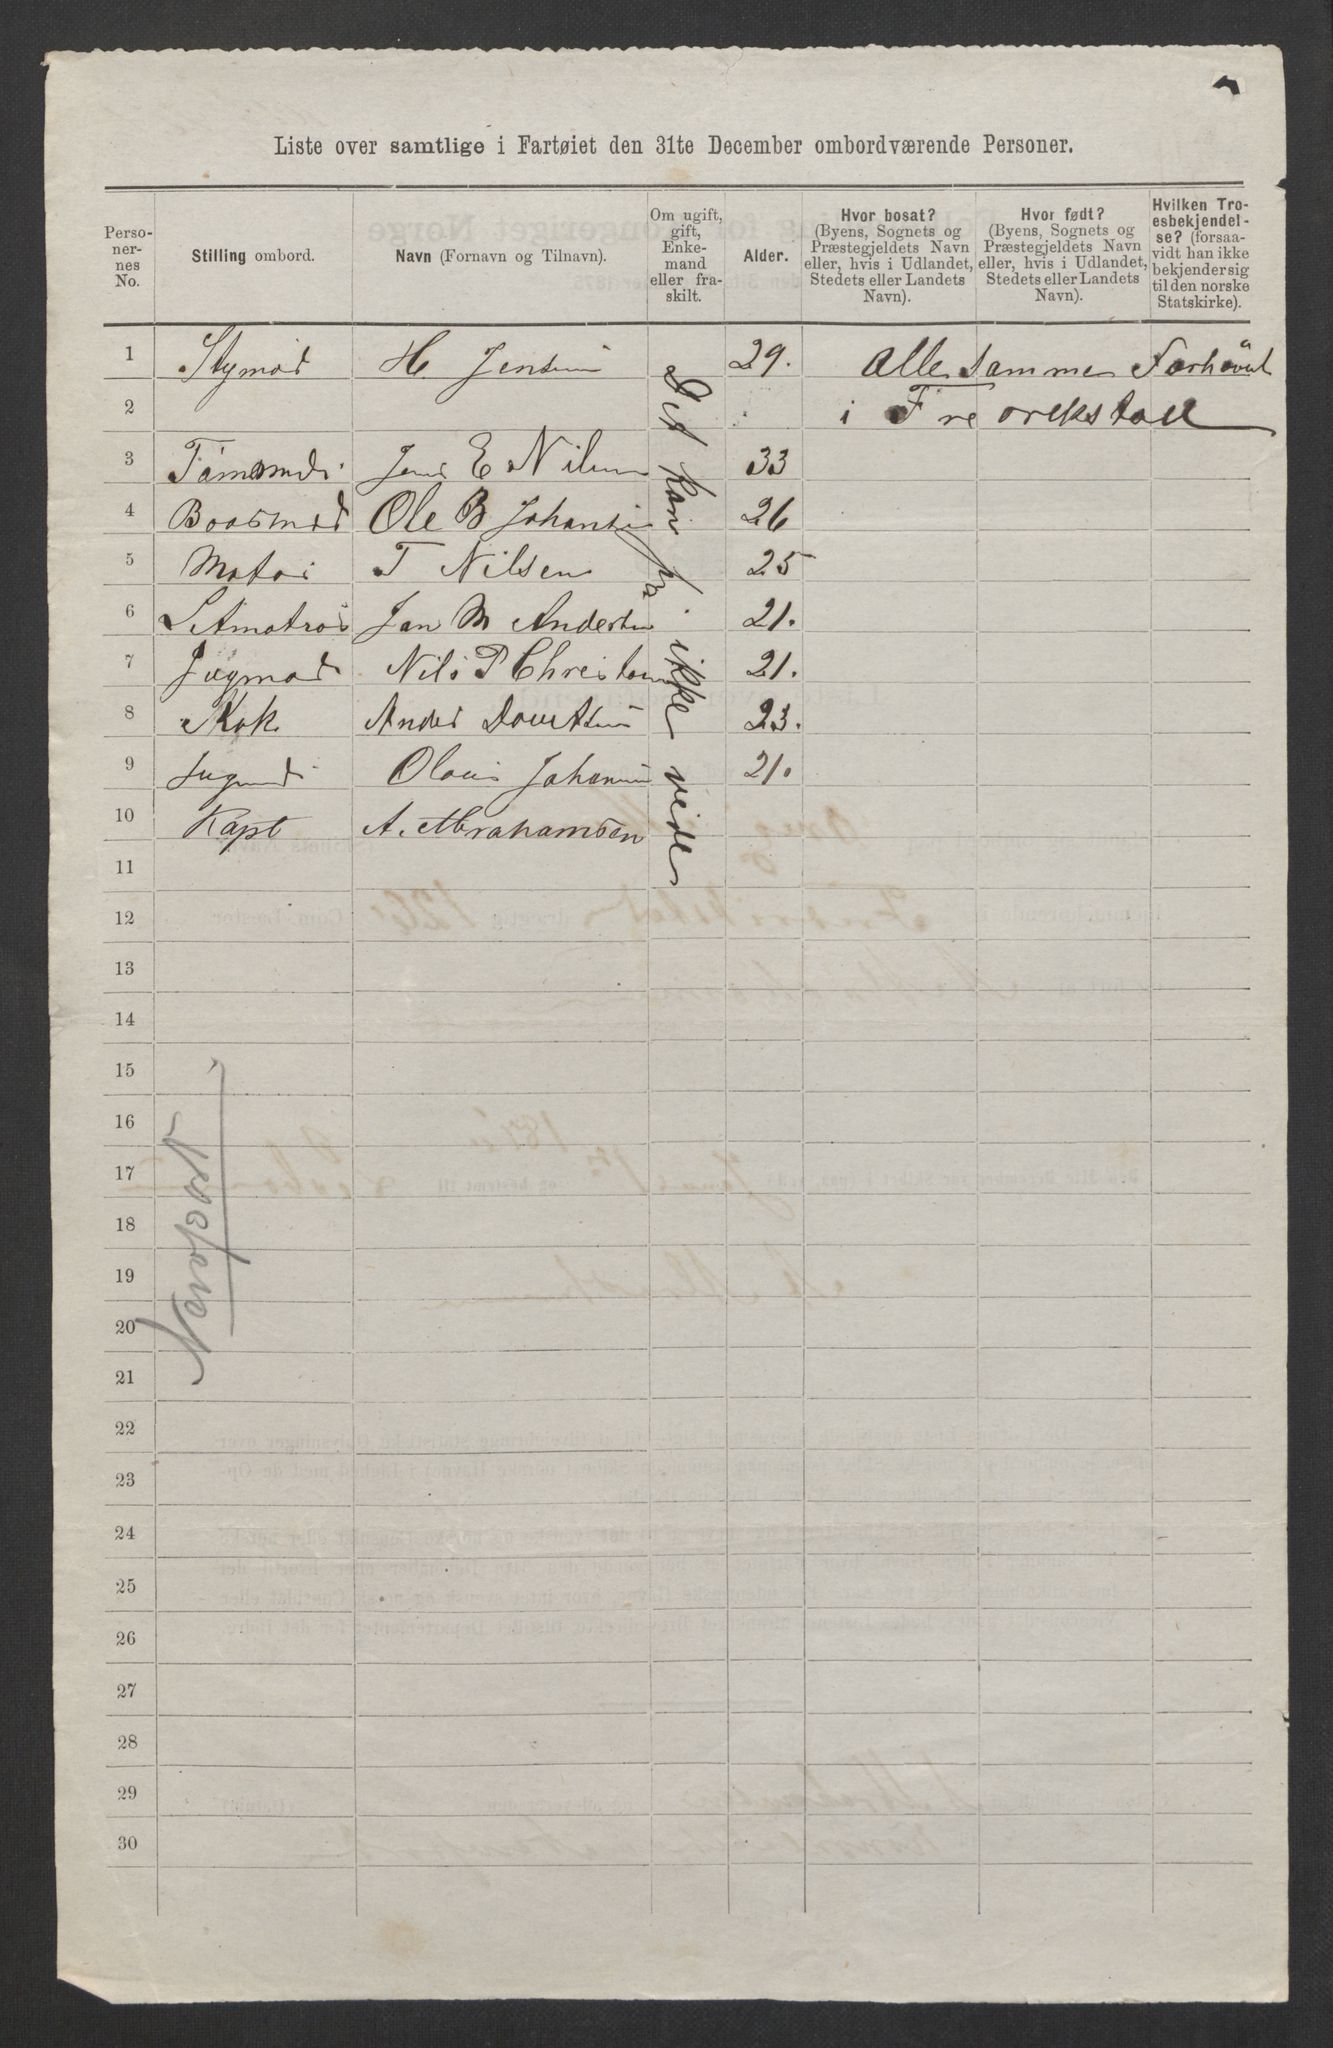 Liste over samtlige i Fartøiet den 31te December ombordværende Personer.
Perso-
ner-
nes
No.
Stilling ombord.
Navn (Fornavn og Tilnavn).
Om ugift,
gift,
Enke-
mand
eller fra-
skilt.
Alder.
Hvor bosat?
(Byens, Sognets og
Præstegjeldets Navn
eller, hvis i Udlandet,
Stedets eller Landets
Navn).
Hvor født?
(Byens, Sognets og
Præstegjeldets Navn
eller, hvis i Udlandet,
Stedets eller Landets
Navn).
Hvilken Tro-
esbekjendel-
se? (forsaa-
vidt han ikke
bekjender sig
til den norske
Statskirke).
1 Stymad H. Jensen 29. Alle Sammen
2 i Fredrekstad
3 Jens E Nilsen 33
4 Baasmad Ole B Johansen 26
5 Matros T Nilsen 25
6 Jan M Andersen 21.
7 Jugmad Nils P Christensen 21.
8 Kok Anders 23.
9 Olaus Johansen 21.
10 Kapt A. Abrahamsen
Det kan jeg ikke vide
11
12
13
14
15
16
17
18
19
20
21
22
23
24
25
26
27
28
29
30